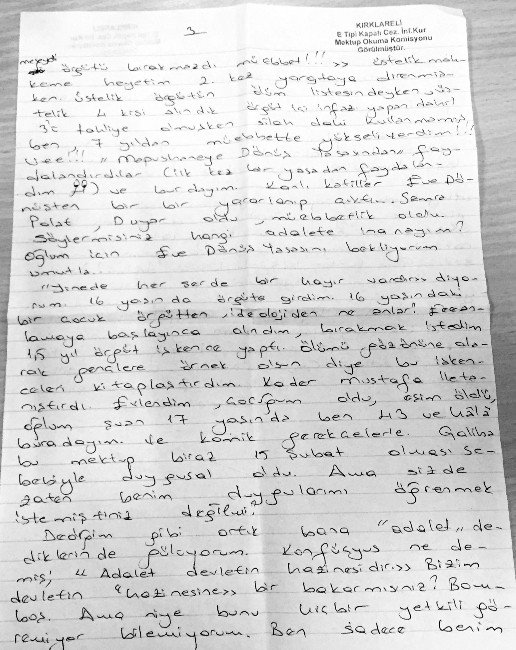 3
KIRKLARELİ
E Tipi Kapalı Cez. İnf.Kur
Mektup Okuma Komisyonu
Görülmüştür.
örgütü bırakmazdı müebbet!!! >> üstelik mah-
keme heyetim 2. kez yargıtaya direnmiş-
ken. üstelik örgütün ölüm listesindeyken üs-
telik 4 kişi alındık örgüt içi infaz yapan dahil
3'ü tahliye olmuşken silah dahi kullanmamış
ben, 7 yıldan müebbette yükseliverdim!!
Veee!!! "Mapushaneye Dönüş Yasasından" fay-
dalandırdılar (ilk kez bir yasadan faydalan-
dım) ve burdayım. Kanlı katiller Eve Dö-
nüşten bir bir yararlanıp çıktı. Semra
Polat, Duyar oldu, müebbetlik oldu.
Söylermisiniz hangi adalete inanayım?
Oğlum için Eve Dönüş Yasasını bekliyorum
umutla..
"Yinede her şerde bir hayır vardır>> diyo-
rum. 16 yaşında örgüte girdim. 16 yaşındaki
bir çocuk örgütten, ideolojiden ne anlar! Eeean-
lamaya başlayınca alındım, bırakmak istedim
15 yıl örgüt işkence yaptı. ölümü gözönüne ala-
rak gençlere örnek olsun diye bu işken-
celeri kitaplaştırdım. Kader Mustafa ile ta-
nıştırdı. Evlendim, çocuğum oldu, eşim öldü,
oğlum şuan 17 yaşında ben 43 ve hâlâ
buradayım. Ve komik gerekçelerle. Galiba
bu mektup biraz 15 Şubat olması se-
bebiyle duygusal oldu. Ama sizde
zaten benim duygularımı öğrenmek
istemiştiniz değilmi?
Dediğim gibi artık bana "adalet" de-
diklerinde gülüyorum. Konfüçyus ne de-
miş; "Adalet devletin hazinesidir>> Bizim
devletin "hazinesine>> bir bakarmısınız? Bom-
boş. Ama niye bunu hiçbir yetkili gö-
remiyor bilemiyorum. Ben sadece benim